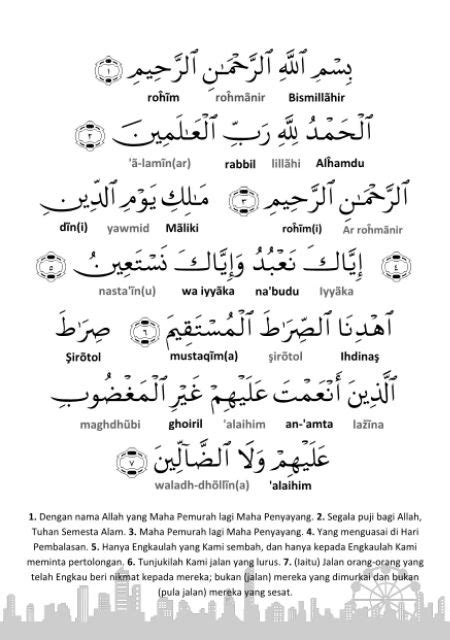 بِسْمِ ٱللَّهِ ٱلرَّحْمَـٰنِ ٱلرَّحِيمِ ١
roĥīm roĥmānir Bismillāhir
ٱلْحَمْدُ لِلَّهِ رَبِّ ٱلْعَـٰلَمِينَ ٢
'ā-lamīn(ar) rabbil lillāhi Alĥamdu
ٱلرَّحْمَـٰنِ ٱلرَّحِيمِ ٣ مَـٰلِكِ يَوْمِ ٱلدِّينِ
dīn(i) yawmid Māliki roĥīm(i) Ar roĥmānir
٤ إِيَّاكَ نَعْبُدُ وَإِيَّاكَ نَسْتَعِينُ ٥
nasta'īn(u) wa iyyāka na'budu Iyyāka
ٱهْدِنَا ٱلصِّرَٰطَ ٱلْمُسْتَقِيمَ ٦ صِرَٰطَ
Şirōtol mustaqīm(a) şirōtol Ihdinaş
ٱلَّذِينَ أَنْعَمْتَ عَلَيْهِمْ غَيْرِ ٱلْمَغْضُوبِ
maghdhūbi ghoiril 'alaihim an-'amta lažīna
عَلَيْهِمْ وَلَا ٱلضَّآلِّينَ ٧
waladh-dhōllīn(a) 'alaihim
1. Dengan nama Allah yang Maha Pemurah lagi Maha Penyayang. 2. Segala puji bagi Allah,
Tuhan Semesta Alam. 3. Maha Pemurah lagi Maha Penyayang. 4. Yang menguasai di Hari
Pembalasan. 5. Hanya Engkaulah yang Kami sembah, dan hanya kepada Engkaulah Kami
meminta pertolongan. 6. Tunjukilah Kami jalan yang lurus. 7. (Iaitu) Jalan orang-orang yang
telah Engkau beri nikmat kepada mereka; bukan (jalan) mereka yang dimurkai dan bukan
(pula jalan) mereka yang sesat.